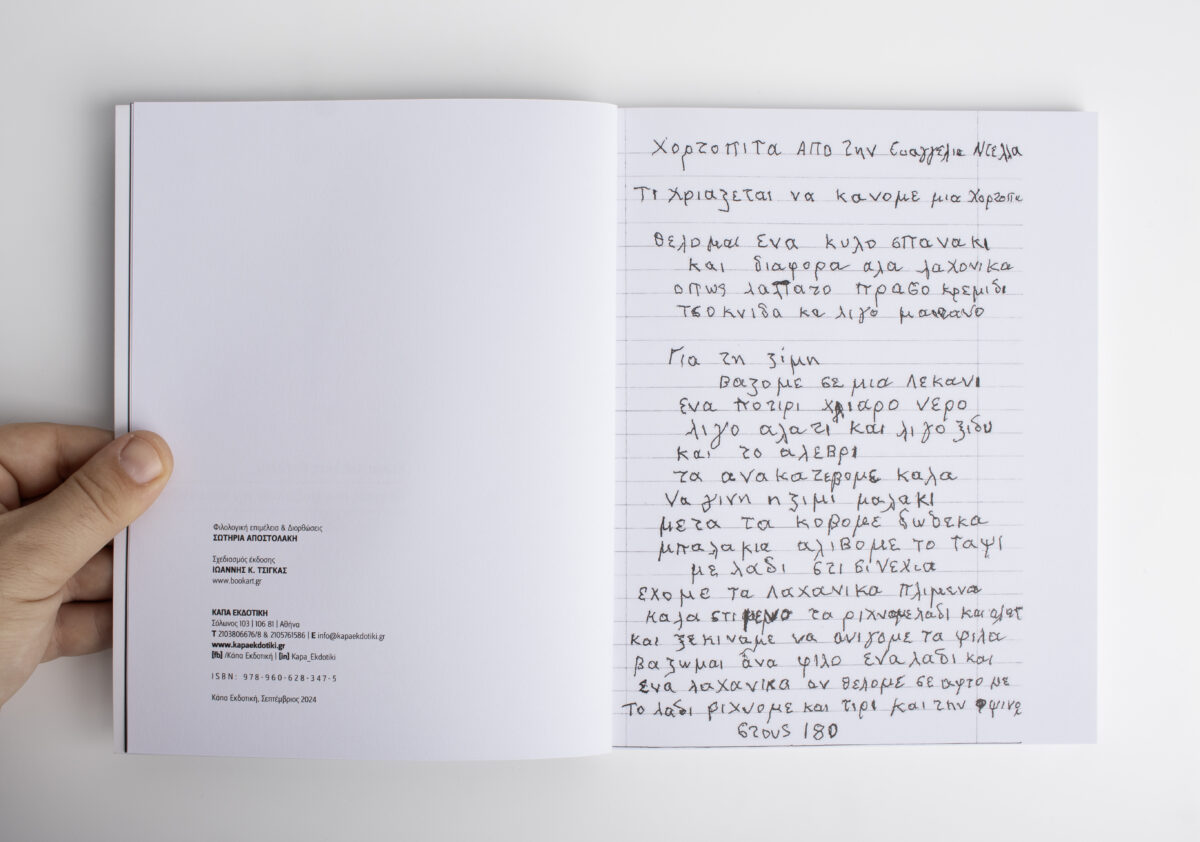 Φιλολογική επιμέλεια & Διορθώσεις
ΣΩΤΗΡΙΑ ΑΠΟΣΤΟΛΑΚΗ
Σχεδιασμός έκδοσης
ΙΩΑΝΝΗΣ Κ. ΤΣΙΓΚΑΣ
www.bookart.gr
ΚΑΠΑ ΕΚΔΟΤΙΚΗ
Σόλωνος 103 | 106 81 | Αθήνα
T 2103806676/8 & 2105761586 | E info@kapaekdotiki.gr
www.kapaekdotiki.gr
[fb] /Κάπα Εκδοτική | [in] Kapa_Ekdotiki
ISBN: 978-960-628-347-5
Κάπα Εκδοτική, Σεπτέμβριος 2024
Χορτοπιτα Απο την Ευαγγελια Ντελλα
Τι χριαζεται να κανομε μια Χορτοπι
θελομαι ενα κυλο σπανακι
και διαφορα αλα λαχονικα
οπως λαπατο πρασο κρεμιδι
τσοκνιδα κε λιγο μαιτανο
Για τη ζίμη
βαζομε σε μια λεκανι
ενα ποτιρι χλιαρο νερο
λιγο αλατι και λιγο ξιδυ
και το αλεβρι
τα ανακατεβομε καλα
να γινη η ζιμι μαλακι
μετα τα κοβομε δωδεκα
μπαλακια αλιβομε το ταψι
με λαδι στι σινεχια
εχομε τα λαχανικα πλιμενα
καλα στιμενο τα ριχνομε λαδι και αλατ
και ξεκιναμε να ανιγομε τα φιλα
βαζωμαι ανα φιλο ενα λαδι και
ενα λαχανικα αν θελομε σε αφτο με
το λαδι ριχνομε και τιρι και την ψινο
στους 180